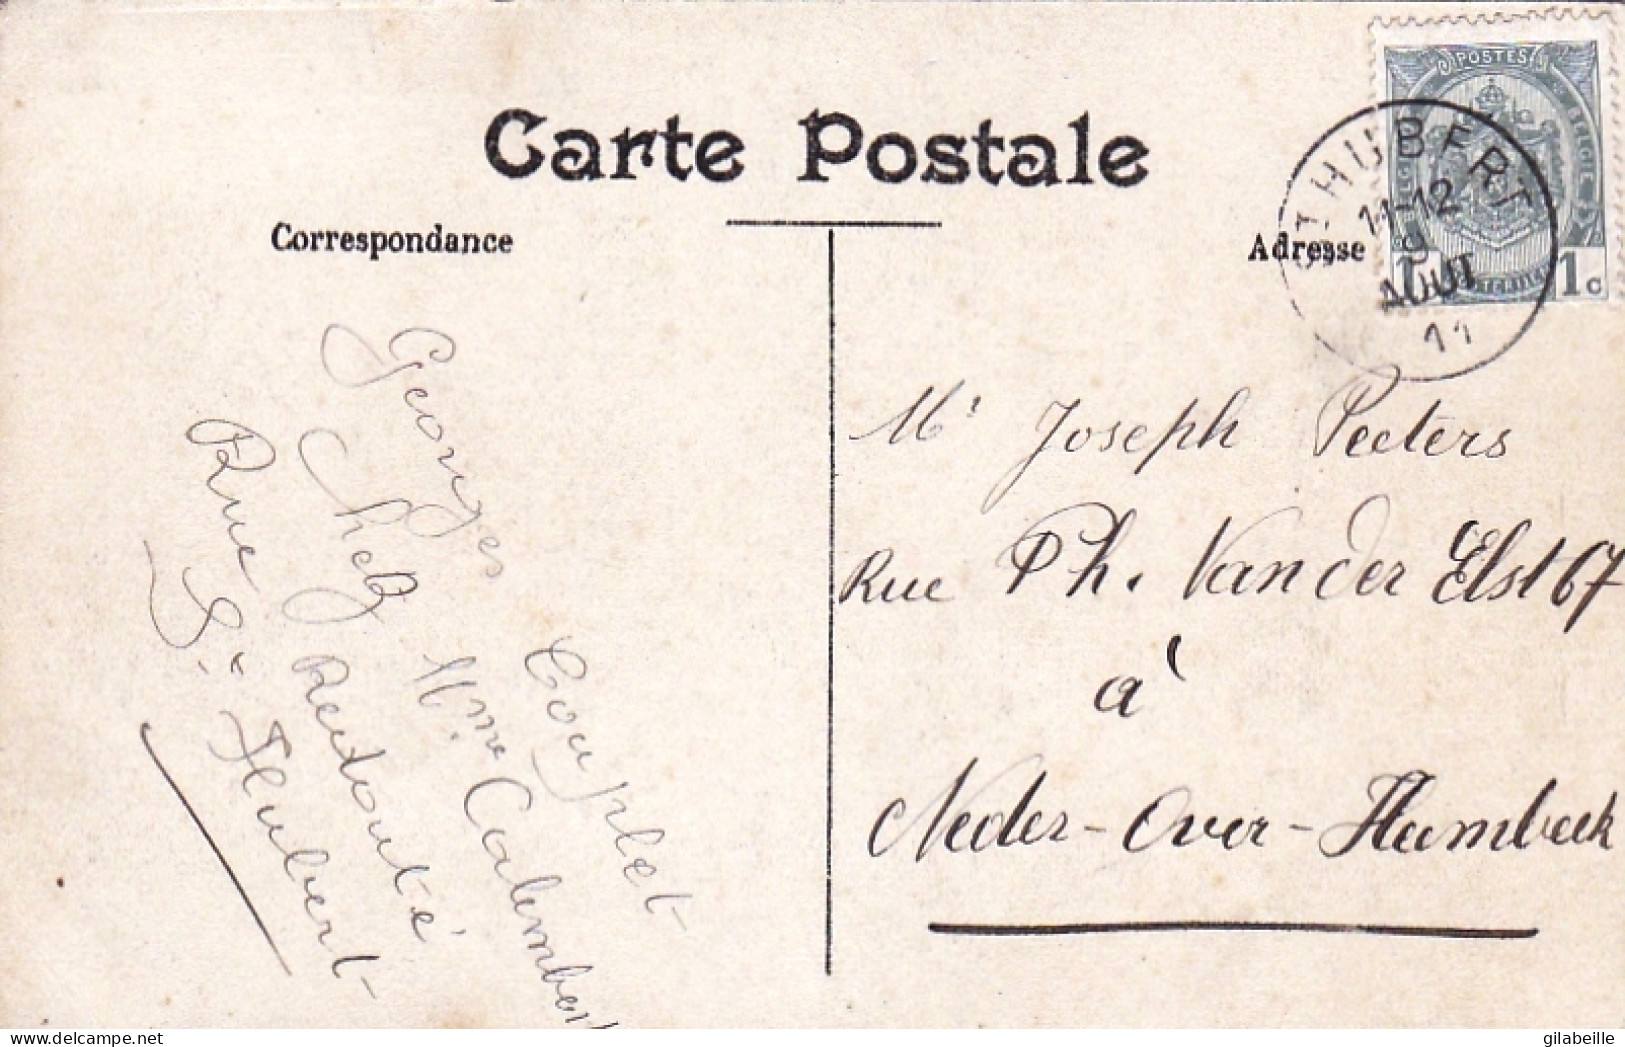 Carte Postale
Correspondance
Adresse
POSTES
1 c
ST HUBERT
11-12
9
AOUT
11
Georges Couplet
Chez Mme Calembert
Redouté
Rue St Hubert
Mr Joseph Peeters
Rue Ph. Van der Elst 67
à
Neder-Over-Heembeek
gilabeille